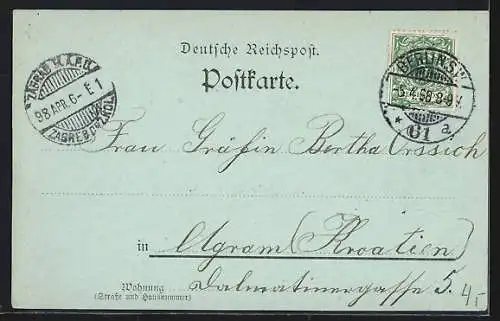 Deutsche Reichspost.
Postkarte.
ZAGREB M.Á.P.U.
98 APR. 6 - E 1
ZAGREB
BERLIN S.W.
5.4.98 8-9 V.
* 61 a
Frau Gräfin Bertha Orssich
in Agram (Kroatien)
Wohnung
(Straße und Hausnummer)
Dalmatinergasse 5.
4,-